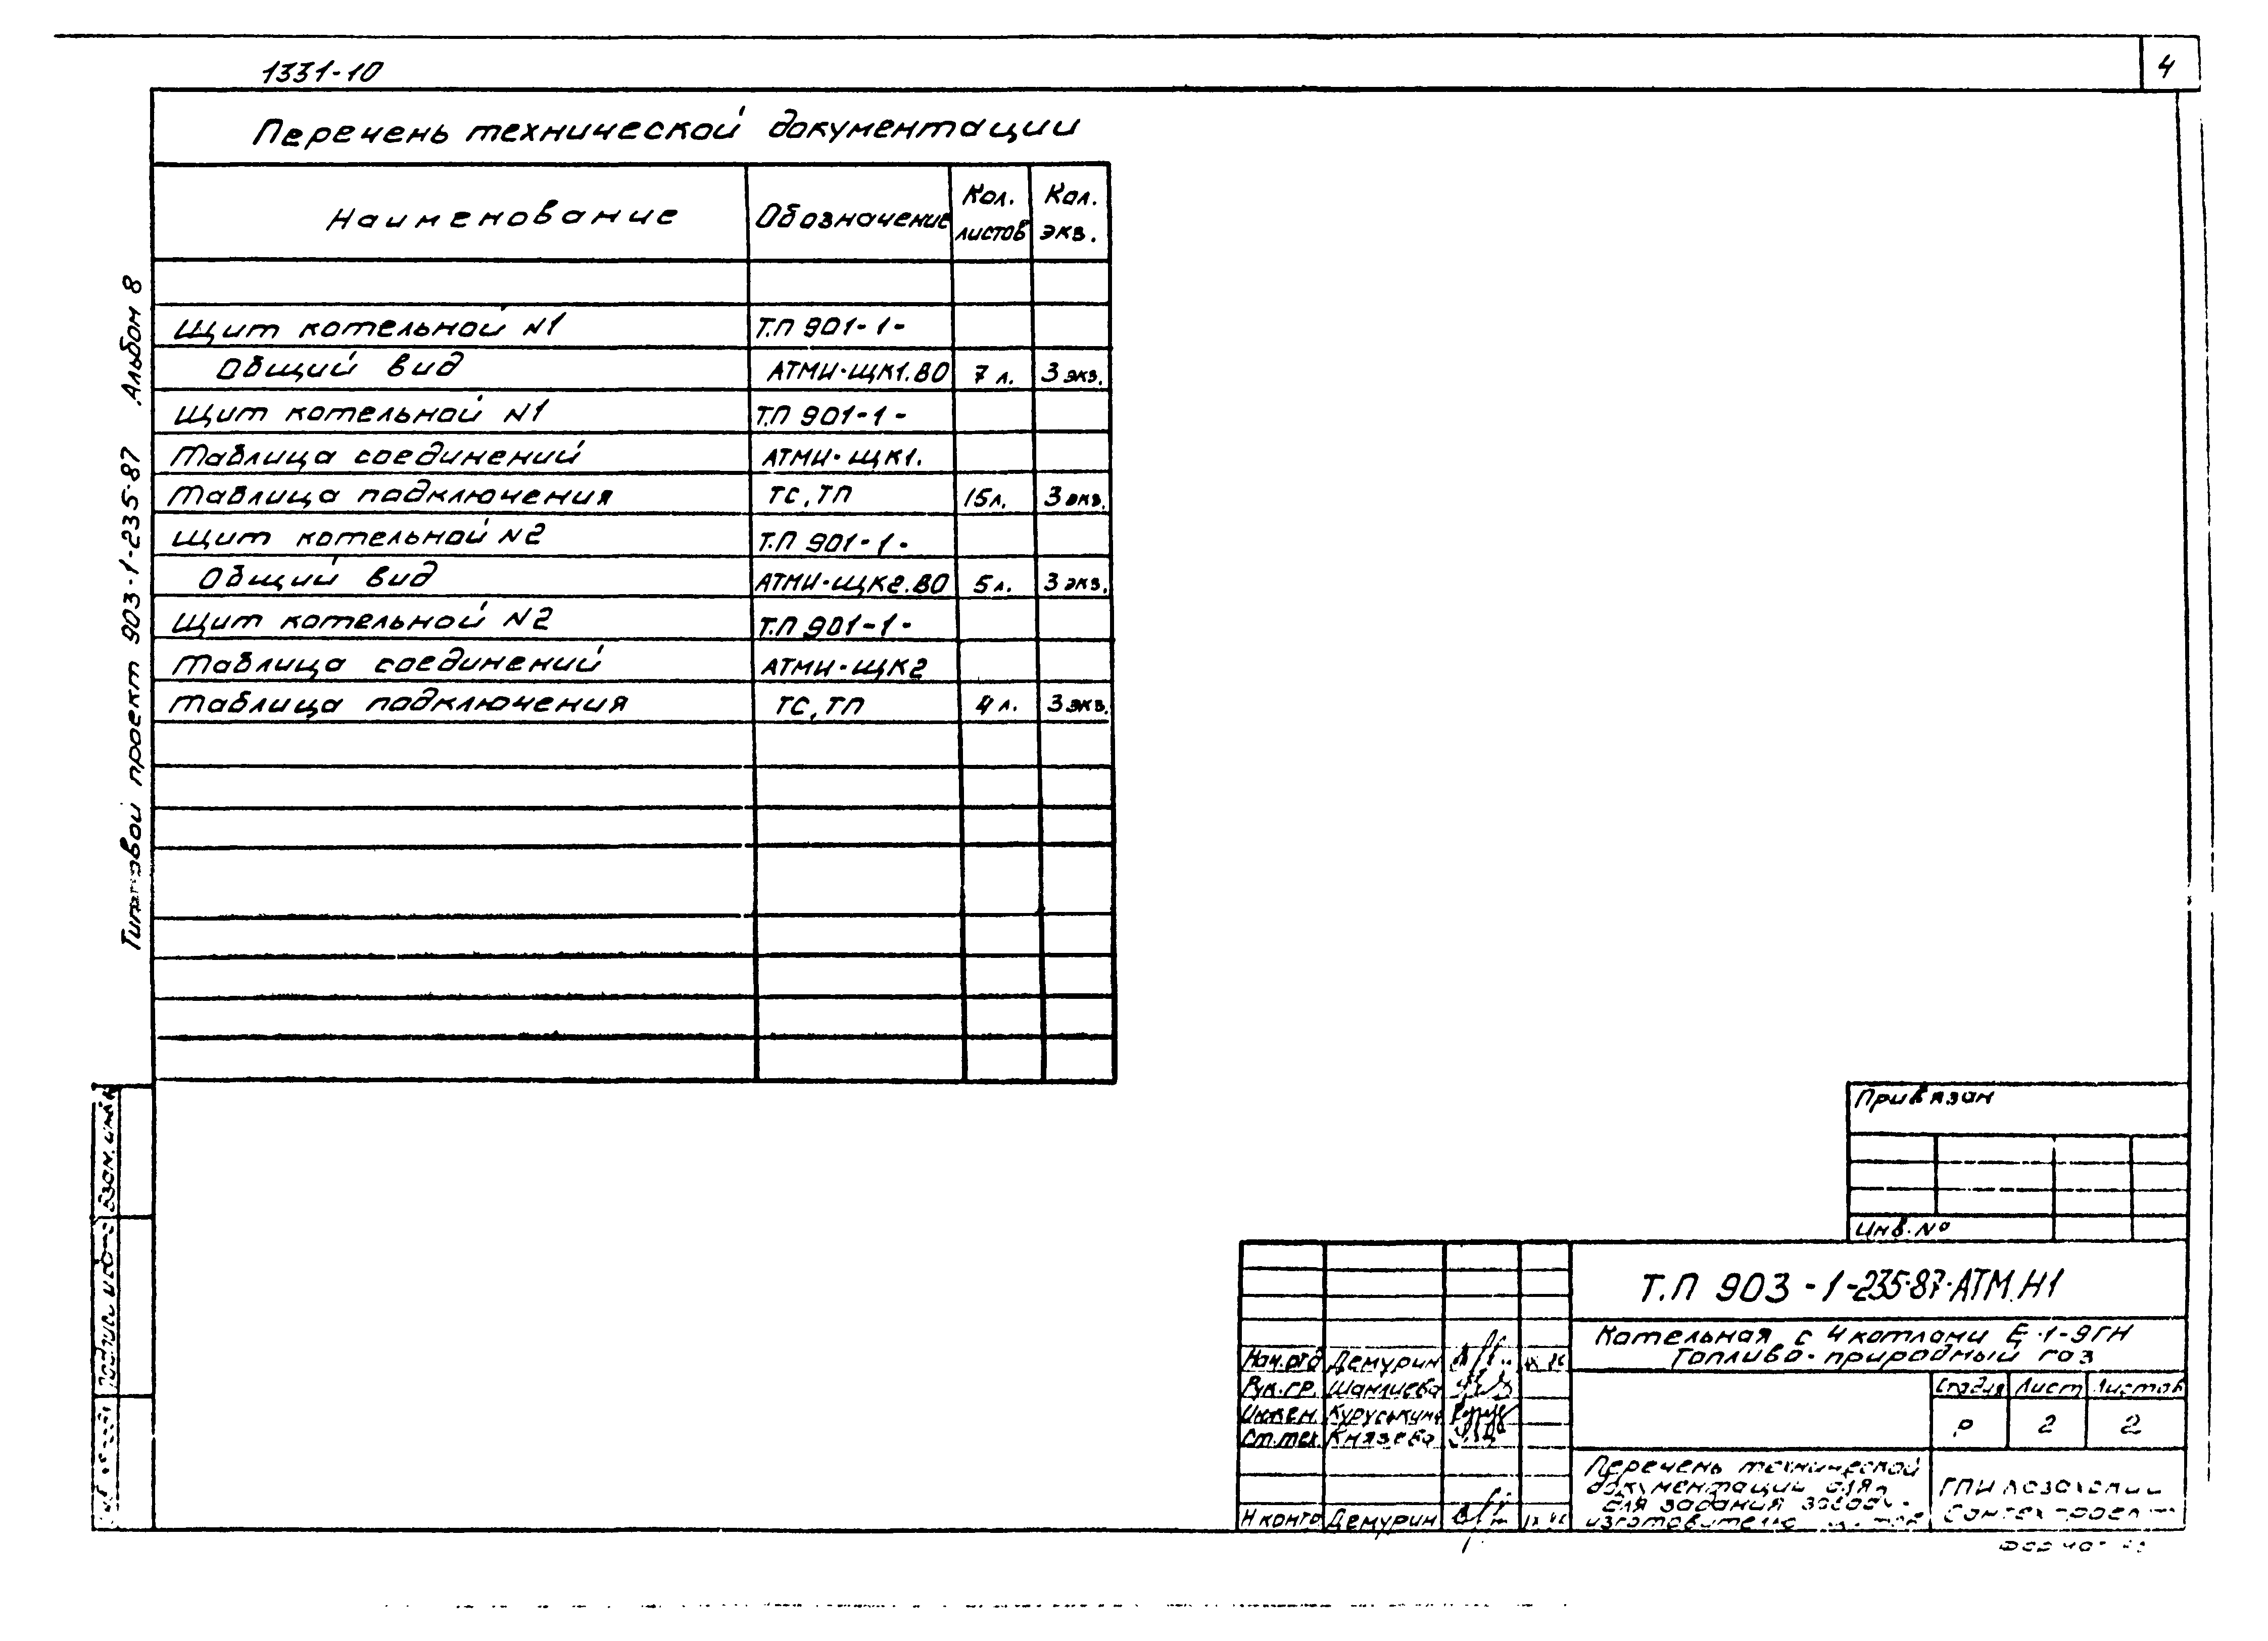 1331-10
4
Перечень технической документации
Наименование Обозначение Кол. листов Кол. экз.
Щит котельной N1 Т.П 901-1-
Общий вид АТМИ-ЩК1.ВО 7 л. 3 экз.
Щит котельной N1 Т.П 901-1-
Таблица соединений АТМИ-ЩК1.
Таблица подключения ТС, ТП 15 л. 3 экз.
Щит котельной N2 Т.П 901-1-
Общий вид АТМИ-ЩК2.ВО 5 л. 3 экз.
Щит котельной N2 Т.П 901-1-
Таблица соединений АТМИ-ЩК2
Таблица подключения ТС, ТП 4 л. 3 экз.
Типовой проект 903-1-235-87 Альбом 8
Взам. инв.
Привязан
Инв. №
Т.П 903-1-235-87-АТМ.Н1
Котельная с 4 котлами Е-1-9ГН
Топливо-природный газ
Нач.отд Демурин
Рук.гр.
Инжен.
Ст.тех. Князева
Н контр Демурин
Стадия Лист Листов
Р 2 2
Перечень технической
документации для
для задания заводу-
изготовителю
ГПИ Казахский
Сантехпроект
Формат